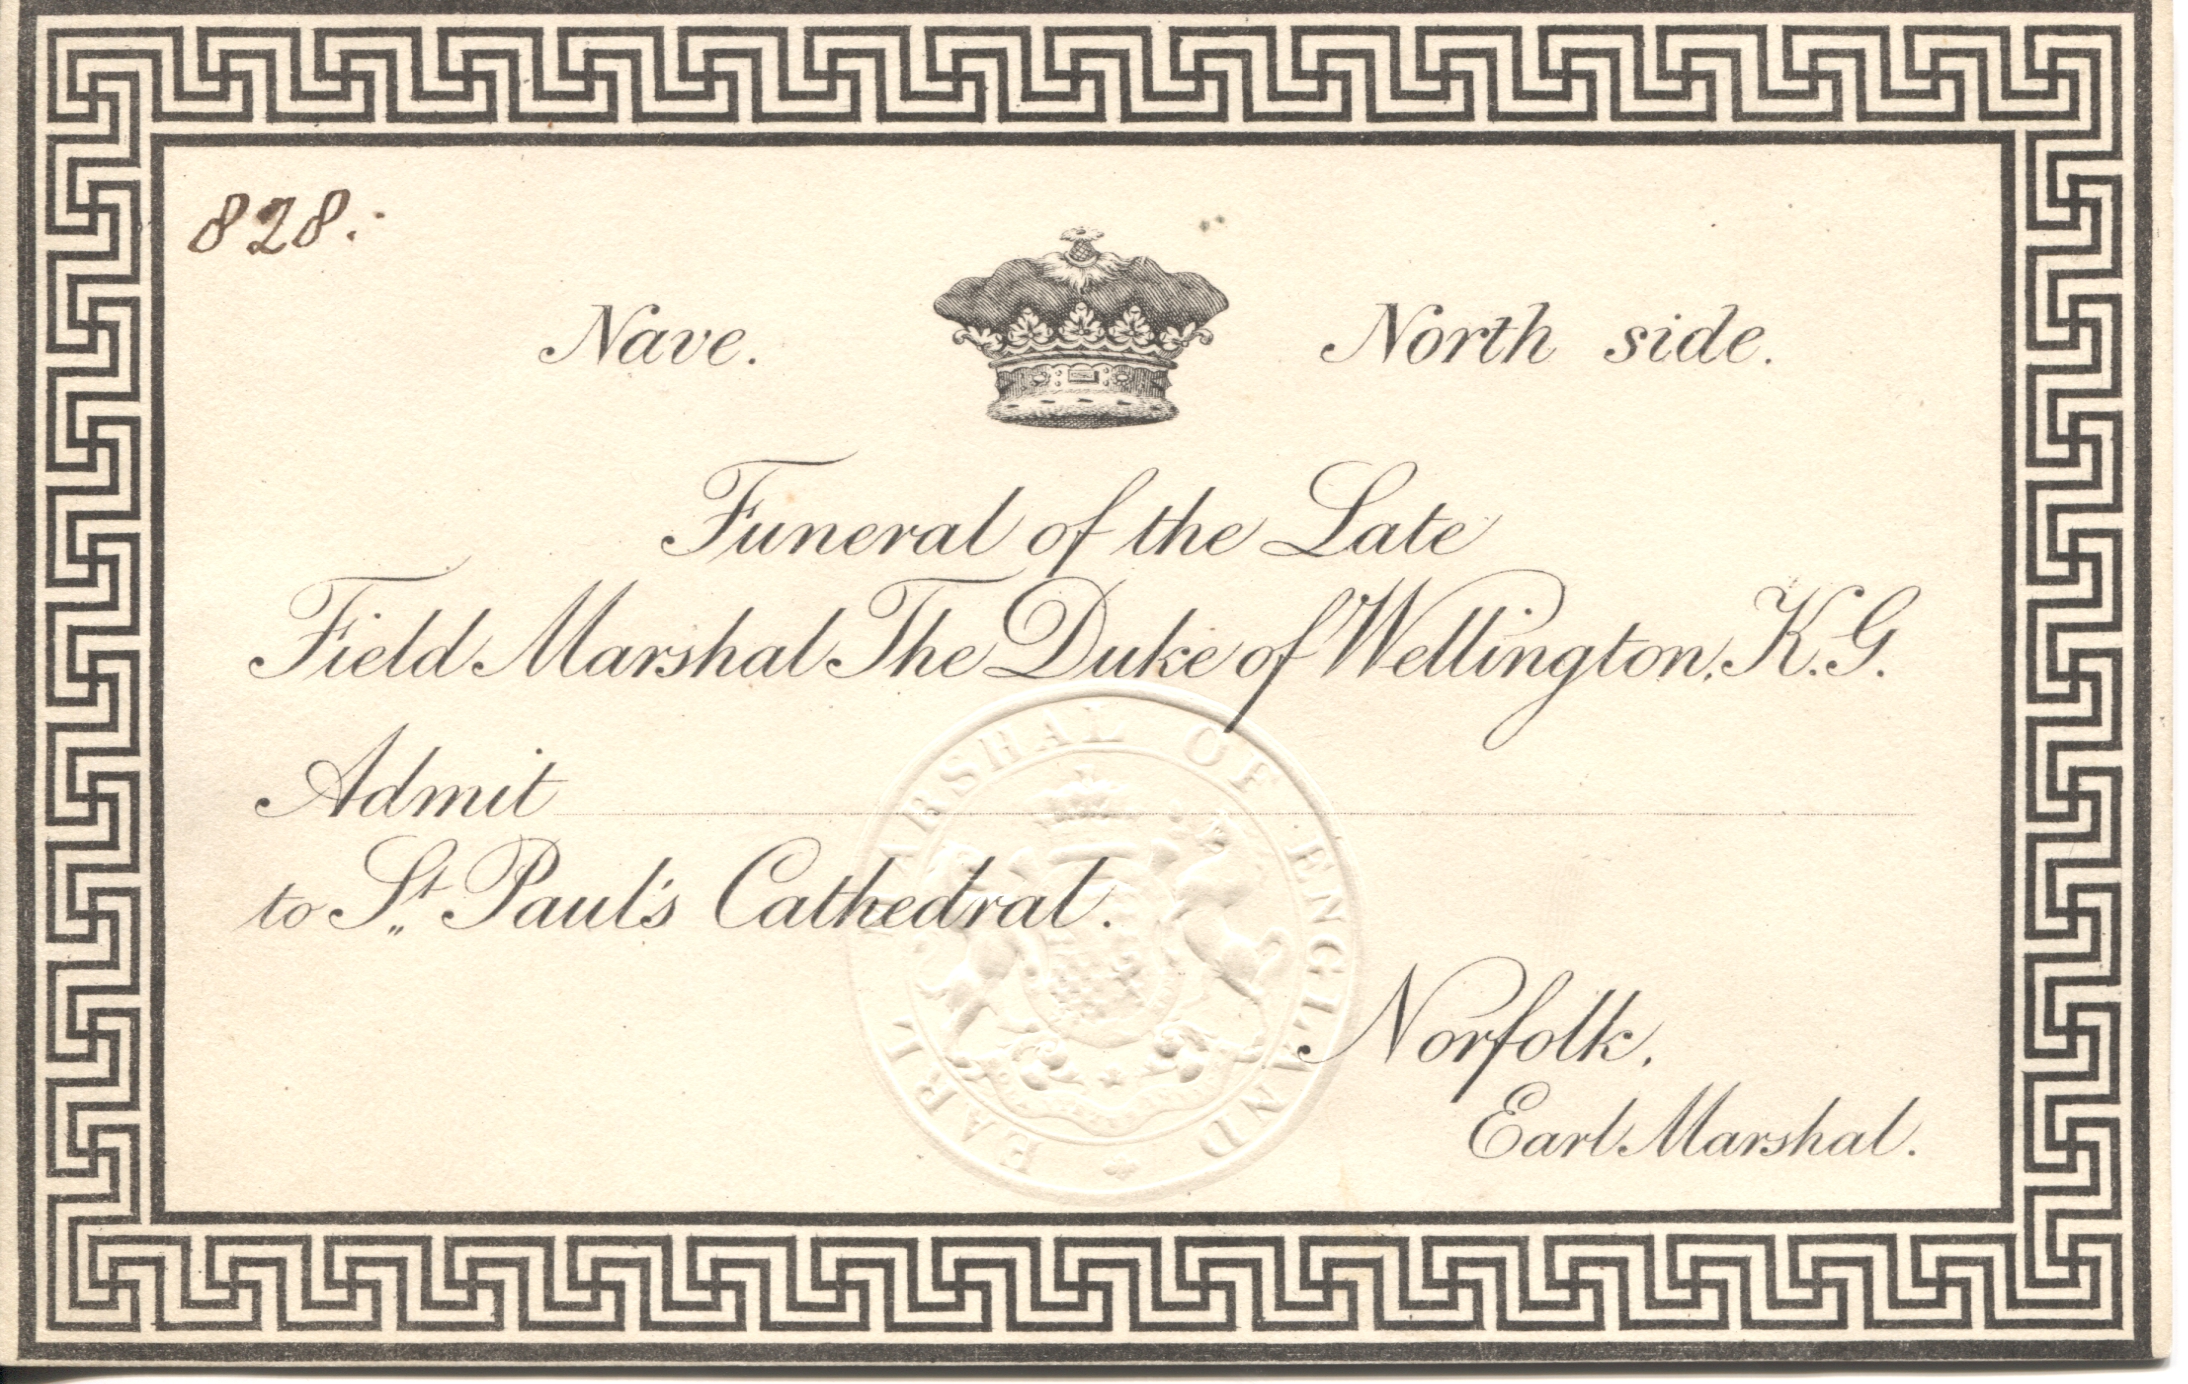 828.
Nave. North side.
Funeral of the Late
Field Marshal The Duke of Wellington, K.G.
Admit
to St. Paul's Cathedral.
Norfolk,
Earl Marshal.
EARL MARSHAL OF ENGLAND